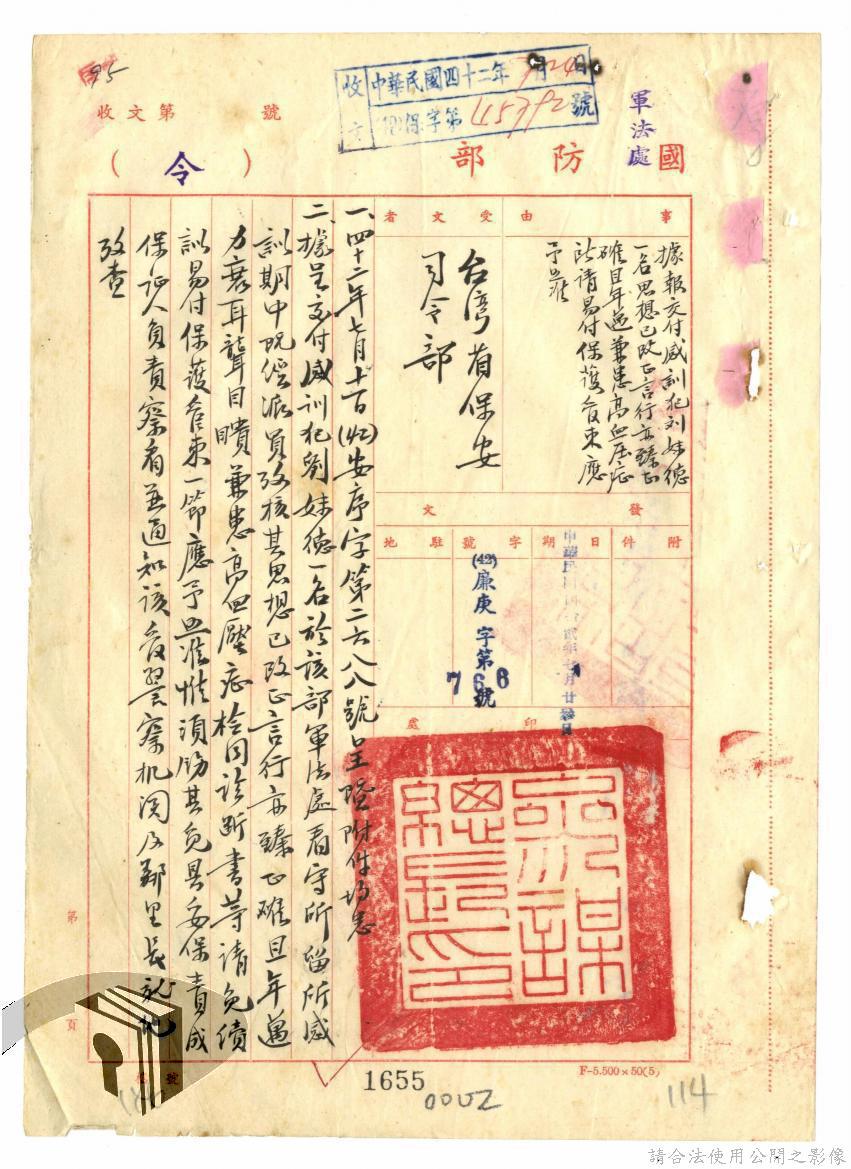 國防部
(令)
軍法處
收文第 號
收文
中華民國四十二年7月24日
(42)保字第45792號
95
事由
據報交付感訓犯刘妹德
一名思想已改正言行亦臻正
確且年邁兼患高血压症
所請易付保護管束應
予照准
受文者
台湾省保安
司令部
發文
附件
日期
中華民國四十貳年七月廿 日
字號
(42)廉庚字第766號
駐地
印處
參謀總長印
一、四十二年七月十 日(42)安序字第二六八八號呈暨附件均悉
二、據呈交付感訓犯劉妹德一名於該部軍法處看守所留所感
訓期中既經派員攷核其思想已改正言行亦臻正確且年邁
力衰耳聾目瞶兼患高血壓症檢同診斷書等請免續
訓易付保護管束一節應予照准惟須飭其覓具妥保責成
保证人負責察看並通知該管警察机関及鄰里長就地
攷查
第 頁
號
1655
F-5.500×50(5)
0002
114
請合法使用公開之影像